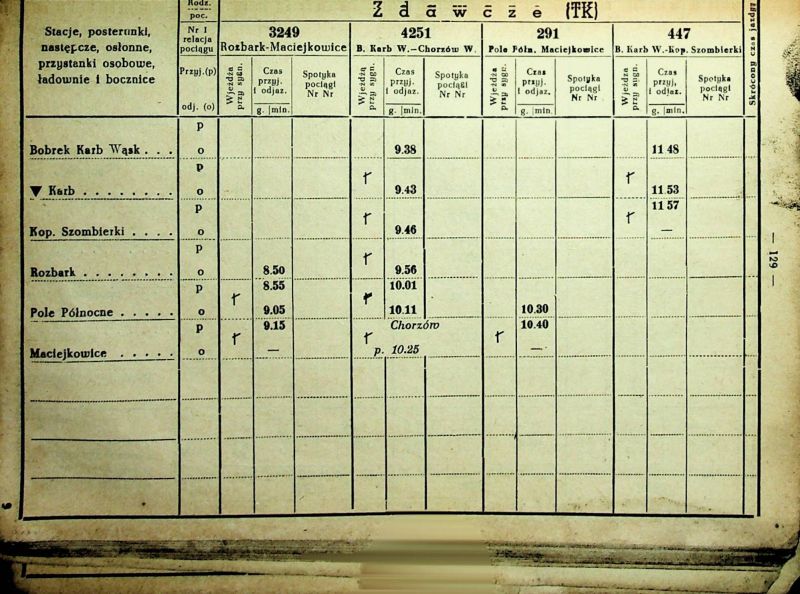 Rodz. poc. Zdawcze (TK)
Stacje, posterunki, następcze, osłonne, przystanki osobowe, ładownie i bocznice
Nr i relacja pociągu
3249 4251 291 447
Rozbark-Maciejkowice B. Karb W.-Chorzów W. Pole Półn. Maciejkowice B. Karb W.-Kop. Szombierki
Przyj.(p)
odj. (o)
Wjeżdża przy sygn. Czas przyj. i odjaz. Spotyka pociągi Nr Nr Wjeżdżą przy sygn. Czas przyj. i odjaz. Spotyka pociągi Nr Nr Wjeżdża przy sygn. Czas przyj. i odjaz. Spotyka pociągi Nr Nr Wjeżdża przy sygn. Czas przyj, i odjaz. Spotyka pociągi Nr Nr
g. |min. g. |min. g. |min. g. |min.
Skrócony czas jazdy
p
Bobrek Karb Wąsk . . . o 9.38 11 48
p
▼ Karb . . . . . . . . o 9.43 11 53
p 11 57
Kop. Szombierki . . . . o 9.46 —
p
Rozbark . . . . . . . . o 8.50 9.56
p 8.55 10.01
Pole Północne . . . . . o 9.05 10.11 10.30
p 9.15 Chorzów 10.40
Maciejkowice . . . . . o — p. 10.25 —
— 129 —